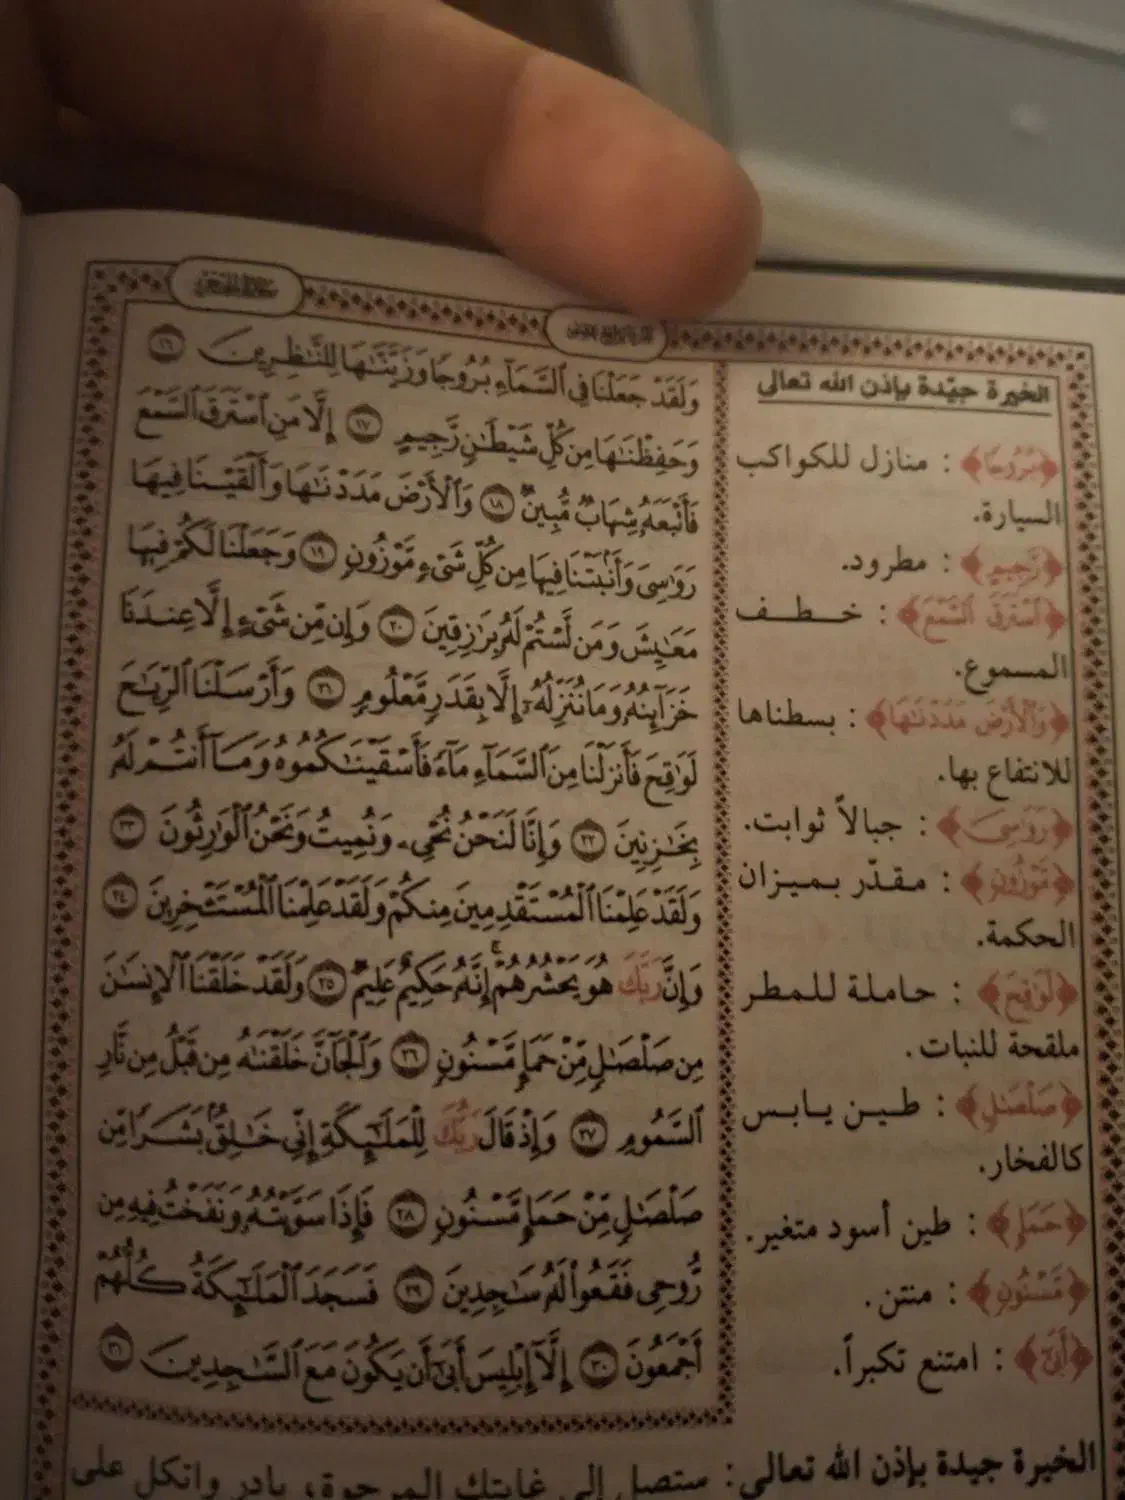 الخيرة جيّدة بإذن الله تعالى
﴿بُرُوجًا﴾ : منازل للكواكب
السيارة.
﴿رَّجِيمٍ﴾ : مطرود.
﴿ٱسْتَرَقَ ٱلسَّمْعَ﴾ : خطف
المسموع.
﴿وَٱلْأَرْضَ مَدَدْنَـٰهَا﴾ : بسطناها
للانتفاع بها.
﴿رَوَٰسِيَ﴾ : جبالاً ثوابت.
﴿مَّوْزُونٍ﴾ : مقدّر بميزان
الحكمة.
﴿لَوَٰقِحَ﴾ : حاملة للمطر
ملقحة للنبات.
﴿صَلْصَـٰلٍ﴾ : طين يابس
كالفخار.
﴿حَمَإٍ﴾ : طين أسود متغير.
﴿مَّسْنُونٍ﴾ : منتن.
﴿أَبَىٰٓ﴾ : امتنع تكبراً.
وَلَقَدْ جَعَلْنَا فِى ٱلسَّمَآءِ بُرُوجًا وَزَيَّنَّـٰهَا لِلنَّـٰظِرِينَ ١٦
وَحَفِظْنَـٰهَا مِن كُلِّ شَيْطَـٰنٍ رَّجِيمٍ ١٧ إِلَّا مَنِ ٱسْتَرَقَ ٱلسَّمْعَ
فَأَتْبَعَهُۥ شِهَابٌ مُّبِينٌ ١٨ وَٱلْأَرْضَ مَدَدْنَـٰهَا وَأَلْقَيْنَا فِيهَا
رَوَٰسِىَ وَأَنۢبَتْنَا فِيهَا مِن كُلِّ شَىْءٍ مَّوْزُونٍ ١٩ وَجَعَلْنَا لَكُمْ فِيهَا
مَعَـٰيِشَ وَمَن لَّسْتُمْ لَهُۥ بِرَٰزِقِينَ ٢٠ وَإِن مِّن شَىْءٍ إِلَّا عِندَنَا
خَزَآئِنُهُۥ وَمَا نُنَزِّلُهُۥٓ إِلَّا بِقَدَرٍ مَّعْلُومٍ ٢١ وَأَرْسَلْنَا ٱلرِّيَـٰحَ
لَوَٰقِحَ فَأَنزَلْنَا مِنَ ٱلسَّمَآءِ مَآءً فَأَسْقَيْنَـٰكُمُوهُ وَمَآ أَنتُمْ لَهُۥ
بِخَـٰزِنِينَ ٢٢ وَإِنَّا لَنَحْنُ نُحْىِۦ وَنُمِيتُ وَنَحْنُ ٱلْوَٰرِثُونَ ٢٣
وَلَقَدْ عَلِمْنَا ٱلْمُسْتَقْدِمِينَ مِنكُمْ وَلَقَدْ عَلِمْنَا ٱلْمُسْتَـْٔخِرِينَ ٢٤
وَإِنَّ رَبَّكَ هُوَ يَحْشُرُهُمْ ۚ إِنَّهُۥ حَكِيمٌ عَلِيمٌ ٢٥ وَلَقَدْ خَلَقْنَا ٱلْإِنسَـٰنَ
مِن صَلْصَـٰلٍ مِّنْ حَمَإٍ مَّسْنُونٍ ٢٦ وَٱلْجَآنَّ خَلَقْنَـٰهُ مِن قَبْلُ مِن نَّارِ
ٱلسَّمُومِ ٢٧ وَإِذْ قَالَ رَبُّكَ لِلْمَلَـٰٓئِكَةِ إِنِّى خَـٰلِقٌۢ بَشَرًا مِّن
صَلْصَـٰلٍ مِّنْ حَمَإٍ مَّسْنُونٍ ٢٨ فَإِذَا سَوَّيْتُهُۥ وَنَفَخْتُ فِيهِ مِن
رُّوحِى فَقَعُوا۟ لَهُۥ سَـٰجِدِينَ ٢٩ فَسَجَدَ ٱلْمَلَـٰٓئِكَةُ كُلُّهُمْ
أَجْمَعُونَ ٣٠ إِلَّآ إِبْلِيسَ أَبَىٰٓ أَن يَكُونَ مَعَ ٱلسَّـٰجِدِينَ ٣١
الخيرة جيدة بإذن الله تعالى: ستصل إلى غايتك المرجوة، بادر واتكل على